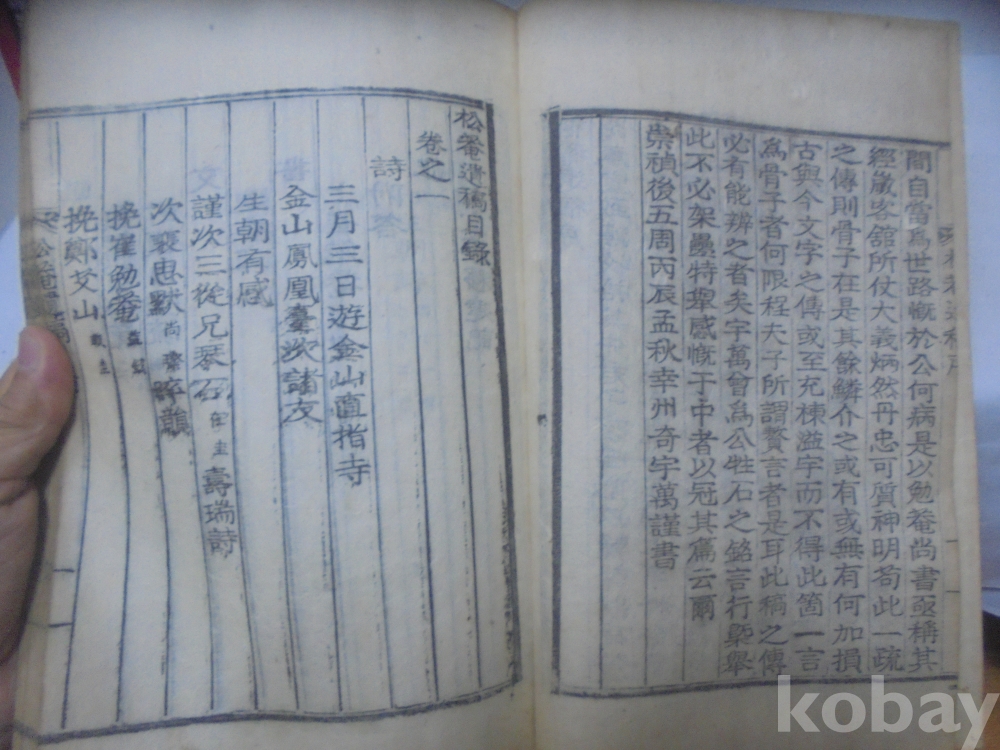 間自當爲世路慨於公何病是以勉菴尚書亟稱其
經歲客館所仗大義炳然丹忠可質神明苟此一疏
之傳則骨子在是其餘鱗介之或有或無有何加損
古與今文字之傳或至充棟溢宇而不得此箇一言
爲骨子者何限程夫子所謂贅言者是耳此稿之傳
必有能辨之者矣宇萬曾爲公牲石之銘言行槩擧
此不必架疊特埋感慨于中者以冠其篇云爾
崇禎後五周丙辰孟秋幸州奇宇萬謹書
松菴遺稿目錄
卷之一
詩
三月三日遊金山直指寺
金山鳳凰臺次諸友
生朝有感
謹次三從兄琴石 圭 壽瑞詩
次裵思默 尚 齋 晬韻
挽崔勉菴 益 鉉
挽鄭艾山
kobay